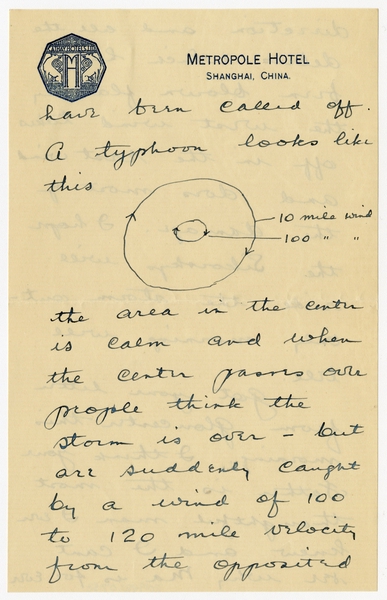 CATHAY HOTELS LTD.
METROPOLE HOTEL
SHANGHAI, CHINA.
have been called off.
A typhoon looks like
this
10 mile wind
100 " "
the area in the center
is calm and when
the center passes over
people think the
storm is over – but
are suddenly caught
by a wind of 100
to 120 mile velocity
from the opposited